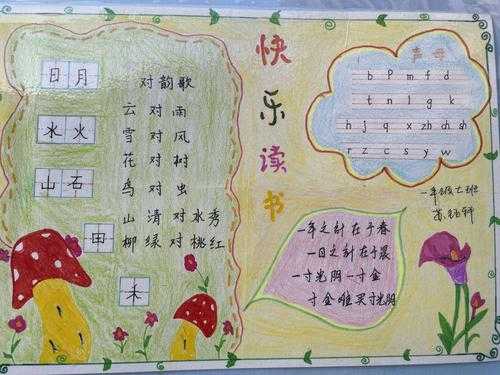 快乐读书
日月
水火
山石
田
禾
对韵歌
云对雨
雪对风
花对树
鸟对虫
山清对水秀
柳绿对桃红
声母
b p m f d
t n l g k
h j q x zh ch sh
r z c s y w
一年级七班
一年之计在于春
一日之计在于晨
一寸光阴一寸金
寸金难买寸光阴